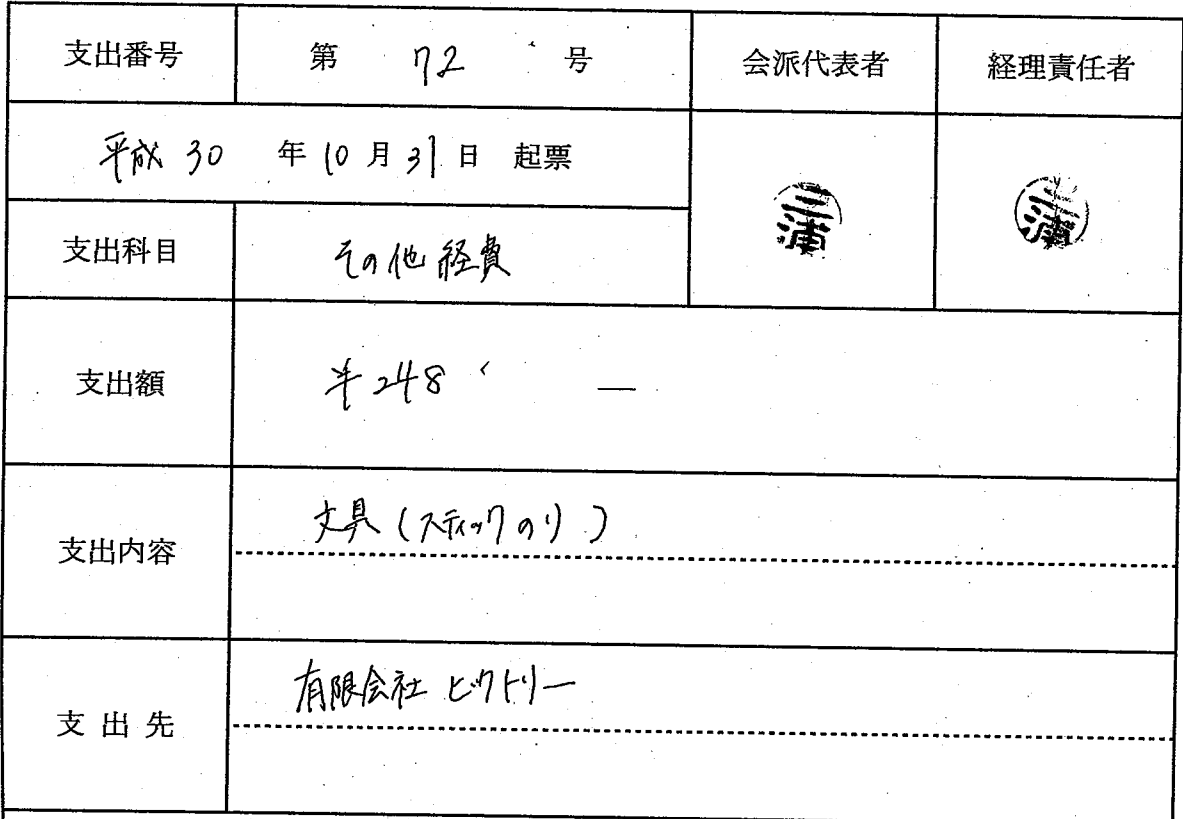 支出番号 第 72 号 会派代表者 経理責任者
平成 30 年 10 月 31 日 起票 三浦 三浦
支出科目 その他経費
支出額 ¥248 —
支出内容 文具(スティックのり)
支出先 有限会社 ビクトリー